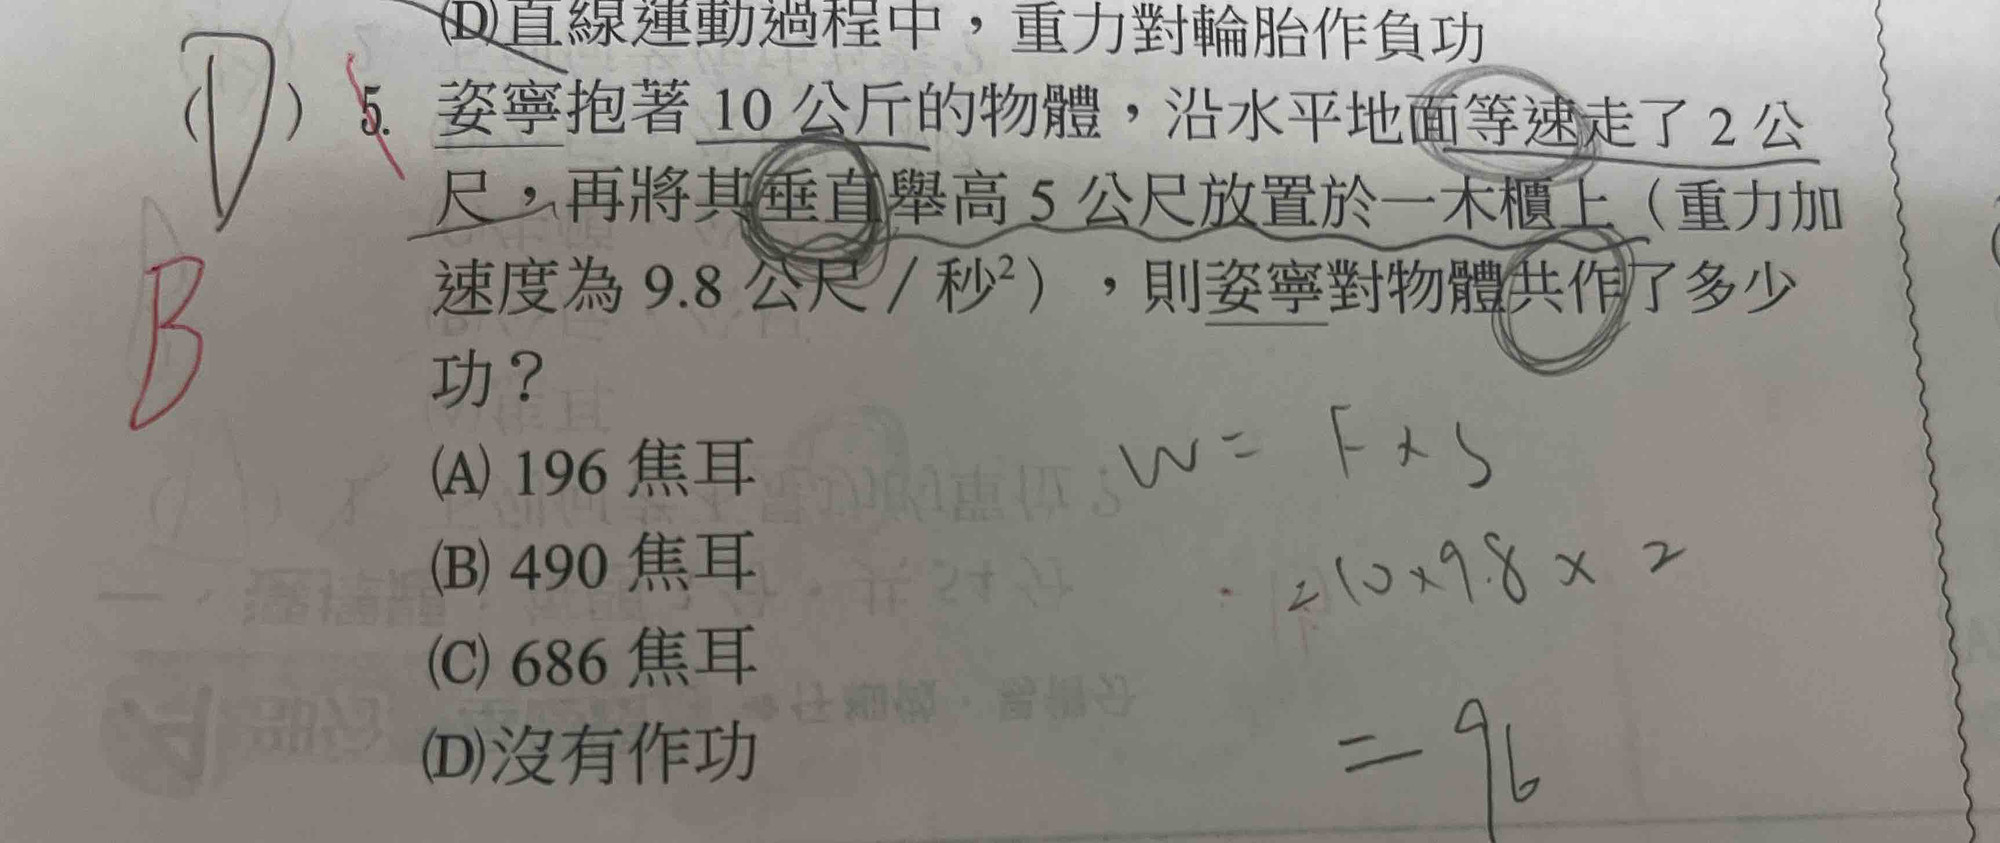 (D)直線運動過程中，重力對輪胎作負功
(D) 5. 姿寧抱著 10 公斤的物體，沿水平地面等速走了 2 公
尺，再將其垂直舉高 5 公尺放置於一木櫃上（重力加
速度為 9.8 公尺／秒²），則姿寧對物體共作了多少
功？
B
(A) 196 焦耳
(B) 490 焦耳
(C) 686 焦耳
(D)沒有作功
W = F x S
= 10 x 9.8 x 2
= 96